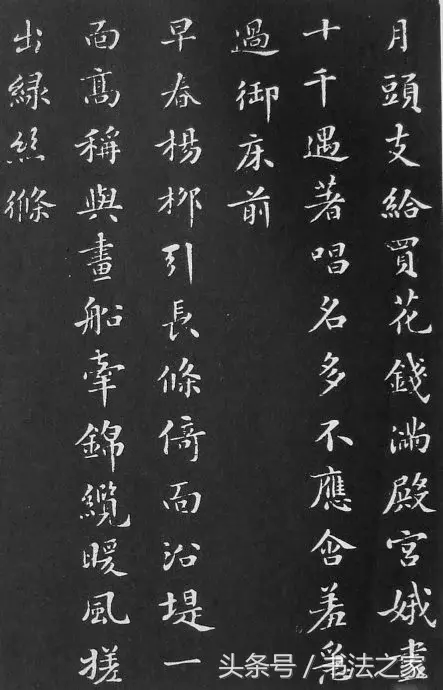 月頭支給買花錢滿殿宮娥盡
十千遇著唱名多不應含羞急
過御床前
早春楊柳引長條倚面沿堤一
面高稱與畫船牽錦纜暖風搓
出綠絲絛
头条号 / 书法之家